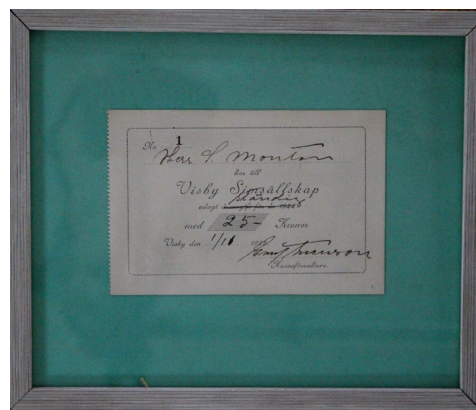 No 1
Herr S. Monton
har till
Visby Simsällskap
ständig
erlagt
med 25- Kronor
Visby den 1/16
Kassaförvaltare.